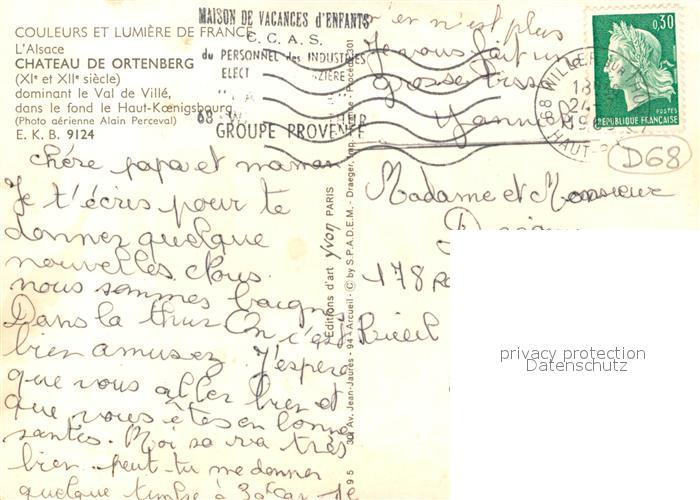 COULEURS ET LUMIÈRE DE FRANCE
L'Alsace
CHATEAU DE ORTENBERG
(XIe et XIIe siècle)
dominant le Val de Villé,
dans le fond le Haut-Kœnigsbourg
(Photo aérienne Alain Perceval)
E. K. B. 9124
MAISON DE VACANCES d'ENFANTS
C. C. A. S.
du PERSONNEL des INDUSTRIES
ELECT ZIÈRE
68
GROUPE PROVENCE
j'en n'est plus
Je vous fait un
grosse
Yann
68 WILLER SUR THUR
18
1969
HAUT-R
0,30
POSTES
RÉPUBLIQUE FRANÇAISE
D68
chère papa et maman
Je t'écris pour te
donner quelque
nouvelles. Nous
nous sommes baigné
Dans la thur On c'est
bien amusez. J'espère
que vous aller bien et
que vous êtes en bonne
santes. Moi sa va très
bien. peut-tu me donner
quelque timbre à 30 car je
Editions d'art Yvon PARIS
30 Av. Jean-Jaurès - 94 - Arcueil - © by S.P.A.D.E.M. - Draeger, Imp.
Madame et Monsieur
178
privacy protection
Datenschutz